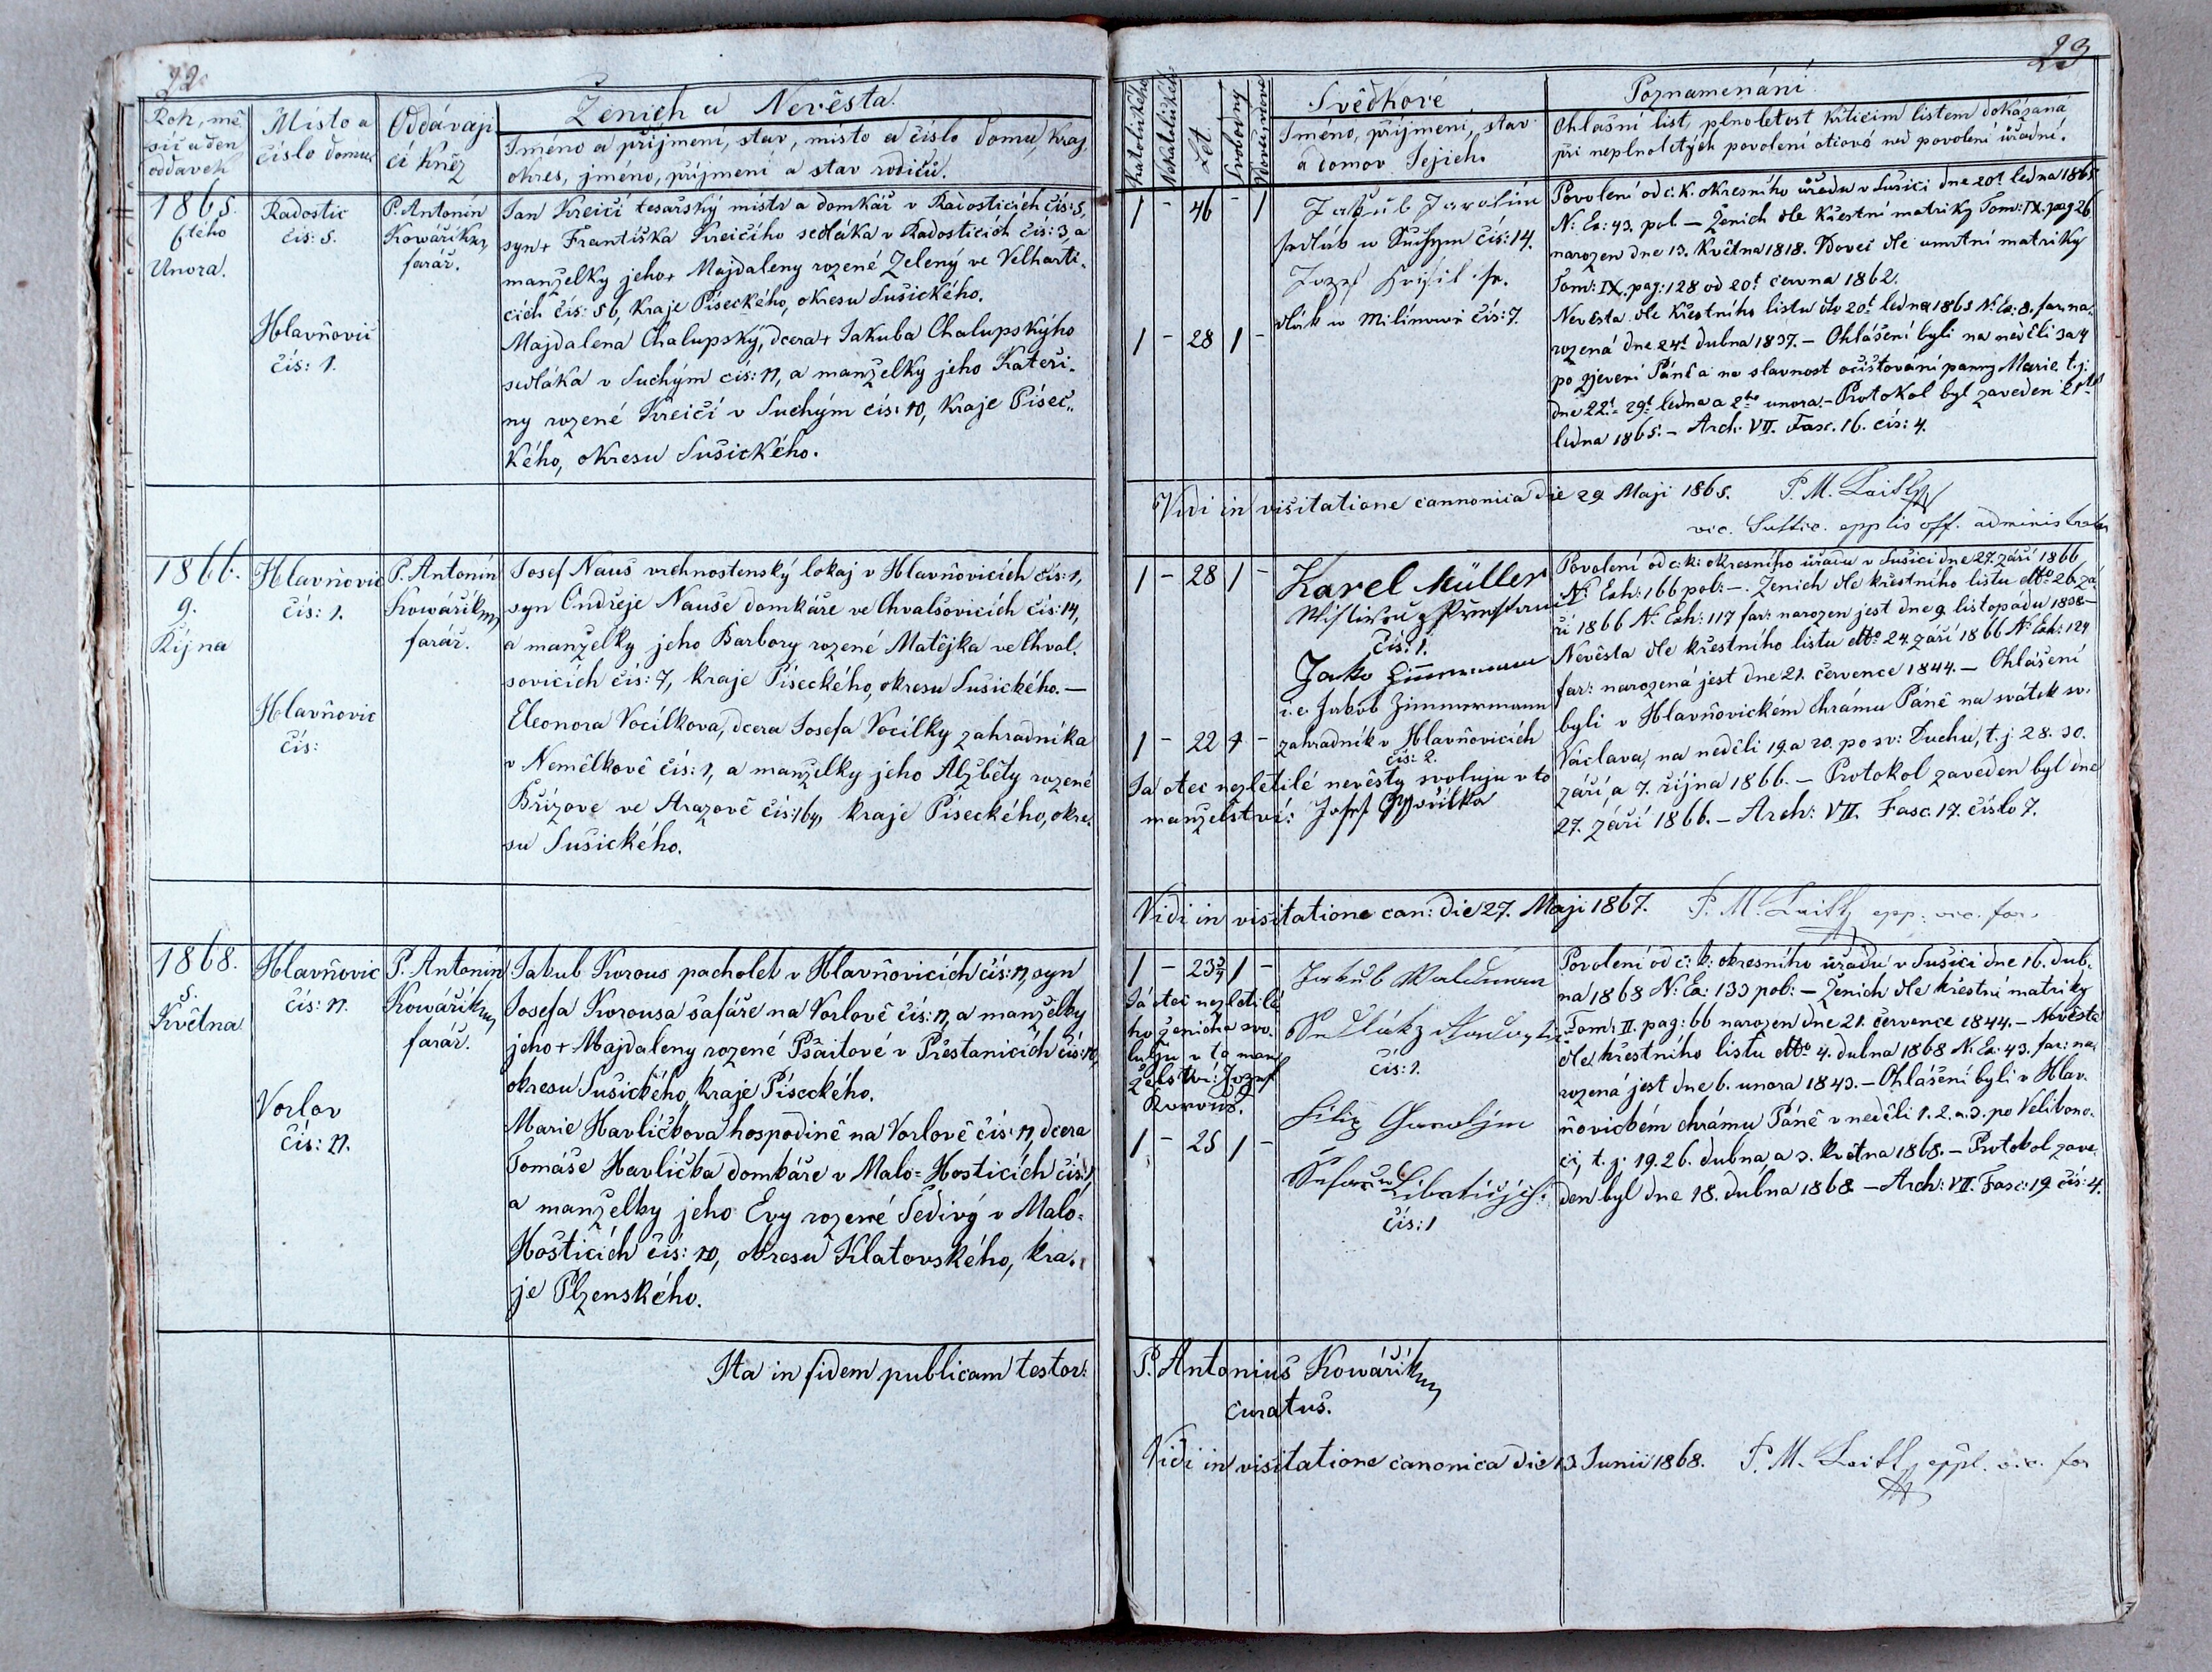 22.
Rok, mě
síc a den
oddavek
Místo a
číslo domu
Oddávají
cí Kněz
Ženich a Nevěsta.
Jméno a příjmení, stav, místo a číslo domu, kraj,
okres, jméno, příjmení a stav rodičů.
1865.
6tého
Unora.
Radostic
čís: 5.
Hlavňovic
čís: 1.
P. Antonín
Kowářík
farář.
Jan Krejčí tesařský mistr a domkář v Radosticích čís: 5,
syn + Františka Krejčího sedláka v Radosticích čís: 3, a
manželky jeho + Majdaleny rozené Zelený ve Velharti-
cích čís: 56, kraje Píseckého, okresu Sušického.
Majdalena Chalupský, dcera + Jakuba Chalupskýho
sedláka v Suchým čís: 11, a manželky jeho Kateři-
ny rozené Krejčí v Suchým čís: 10, kraje Písec-
kého, okresu Sušického.
1866.
9.
Října
Hlavňovic
čís: 1.
Hlavňovic
čís:
P. Antonín
Kowářík
farář.
Josef Nauš vrchnostenský lokaj v Hlavňovicích čís: 1,
syn Ondřeje Nauše domkáře ve Chvalšovicích čís: 14,
a manželky jeho Barbory rozené Matějka ve Chval-
šovicích čís: 7, kraje Píseckého, okresu Sušického. —
Eleonora Vocílkova, dcera Josefa Vocílky zahradníka
v Nemělkově čís: 1, a manželky jeho Alžběty rozené
Břízove ve Strazově čís: 164, kraje Píseckého, okre-
su Sušického.
1868.
5.
Května
Hlavňovic
čís: 11.
Vorlov
čís: 11.
P. Antonín
Kowářík
farář.
Jakub Korous pacholek v Hlavňovicích čís: 11, syn
Josefa Korousa šafáře na Vorlově čís: 11, a manželky
jeho + Majdaleny rozené Pšaitové v Přestanicích čís: 10,
okresu Sušického, kraje Píseckého.
Marie Havlíčkova hospodině na Vorlově čís: 11, dcera
Tomáše Havlíčka domkáře v Malo-Hosticích čís: 1,
a manželky jeho Evy rozené Šedivý v Malo-
Hošticích čís: 10, okresu Klatovského, kra-
je Plzenského.
Ita in fidem publicam testor:
23
Katolického
Nekatolického
Let
Svobodný
Vdovec, vdova
Svědkové
Jméno, příjmení, stav
a domov Jejich.
Poznamenání
Ohlašní list, plnoletost křticím listem dokázaná
při neplnoletých povolení otcové neb povolení úřadní.
1 - 46 - 1
Jakub Jarolím
sedlák w Suchym čís: 14.
Jozef
w Milínowě čís: 7.
1 - 28 1 -
Povolení od c. k. okresního úřadu v Sušici dne 20t ledna 1865
N: Ex: 43. pol — Ženich dle křestní matriky Tom: IX. pag 26
narozen dne 13. Května 1818. Vdovec dle umrtní matriky
Tom: IX. pag: 128 od 20t června 1862.
Nevěsta dle křestního listu dto 20t ledna 1865 N: Ex: 8. far. na-
rozená dne 24t dubna 1837. — Ohlášení byli na neděli 3 a 4
po zjevení Páně a na slavnost očistování panny Marie t. j:
dne 22t 29t ledna a 2ho unora. — Protokol byl zaveden 21t
ledna 1865. — Arch. VII. Fasc. 16. čís: 4.
Vidi in visitatione cannonica die 29 Maji 1865. P. M.
vic. off. administrator
1 - 28 1 -
Karel Müller
čís: 1.
Jakob Zimmermann
i. e. Jakob Zimmermann
zahradník v Hlavňovicích
čís: 2.
1 - 22 1 -
Já otec nezletilé nevěsty svoluju v to
manželství: Josef
Povolení od c: k: okresního úřadu v Sušici dne 27. září 1866
N: Exh: 166 pol: —. Ženich dle křestního listu dtto 26. zá-
ří 1866 N: Exh: 117 far: narozen jest dne 9. listopádu 1838—
Nevěsta dle křestního listu dtto 24. září 1866 N: Exh: 124
far: narozená jest dne 21. července 1844. — Ohlášení
byli v Hlavňovickém chrámu Páně na svátek sv.
Václava, na neděli 19. a 20. po sv: Duchu, t. j: 28. 30.
září, a 7. října 1866. — Protokol zaveden byl dne
27. září 1866. — Arch: VII. Fasc. 17. číslo 7.
Vidi in visitatione can: die 27. Maji 1867. P. M. epp: vic. for.
1 - 23 3/4 1 -
Já otec nezletilé-
ho ženicha svo-
luju v to man-
želství: Jozef
Korous.
1 - 25 1 -
Jakub Waldman
Sedlák z
čís: 1.
Filip Jarolym
čís: 1
Povolení od c: k: okresního úřadu v Sušici dne 16. dub-
na 1868 N: Ex: 133 pol: — Ženich dle křestní matriky
Tom: II. pag: 66 narozen dne 21. července 1844. — Nevěsta
dle křestního listu dtto 4. dubna 1868 N: Ex: 43. far: na-
rozená jest dne 6. unora 1843. — Ohlášení byli v Hlav-
ňovickém chrámu Páně v neděli 1. 2. a 3. po Velikono-
ci, t. j: 19. 26. dubna a 3. května 1868. — Protokol zave-
den byl dne 18. dubna 1868. — Arch: VII. Fasc: 19 čís: 4.
P. Antonius Kowářík
curatus.
Vidi in visitatione canonica die 13. Junii 1868. P. M. eppl. vic. for